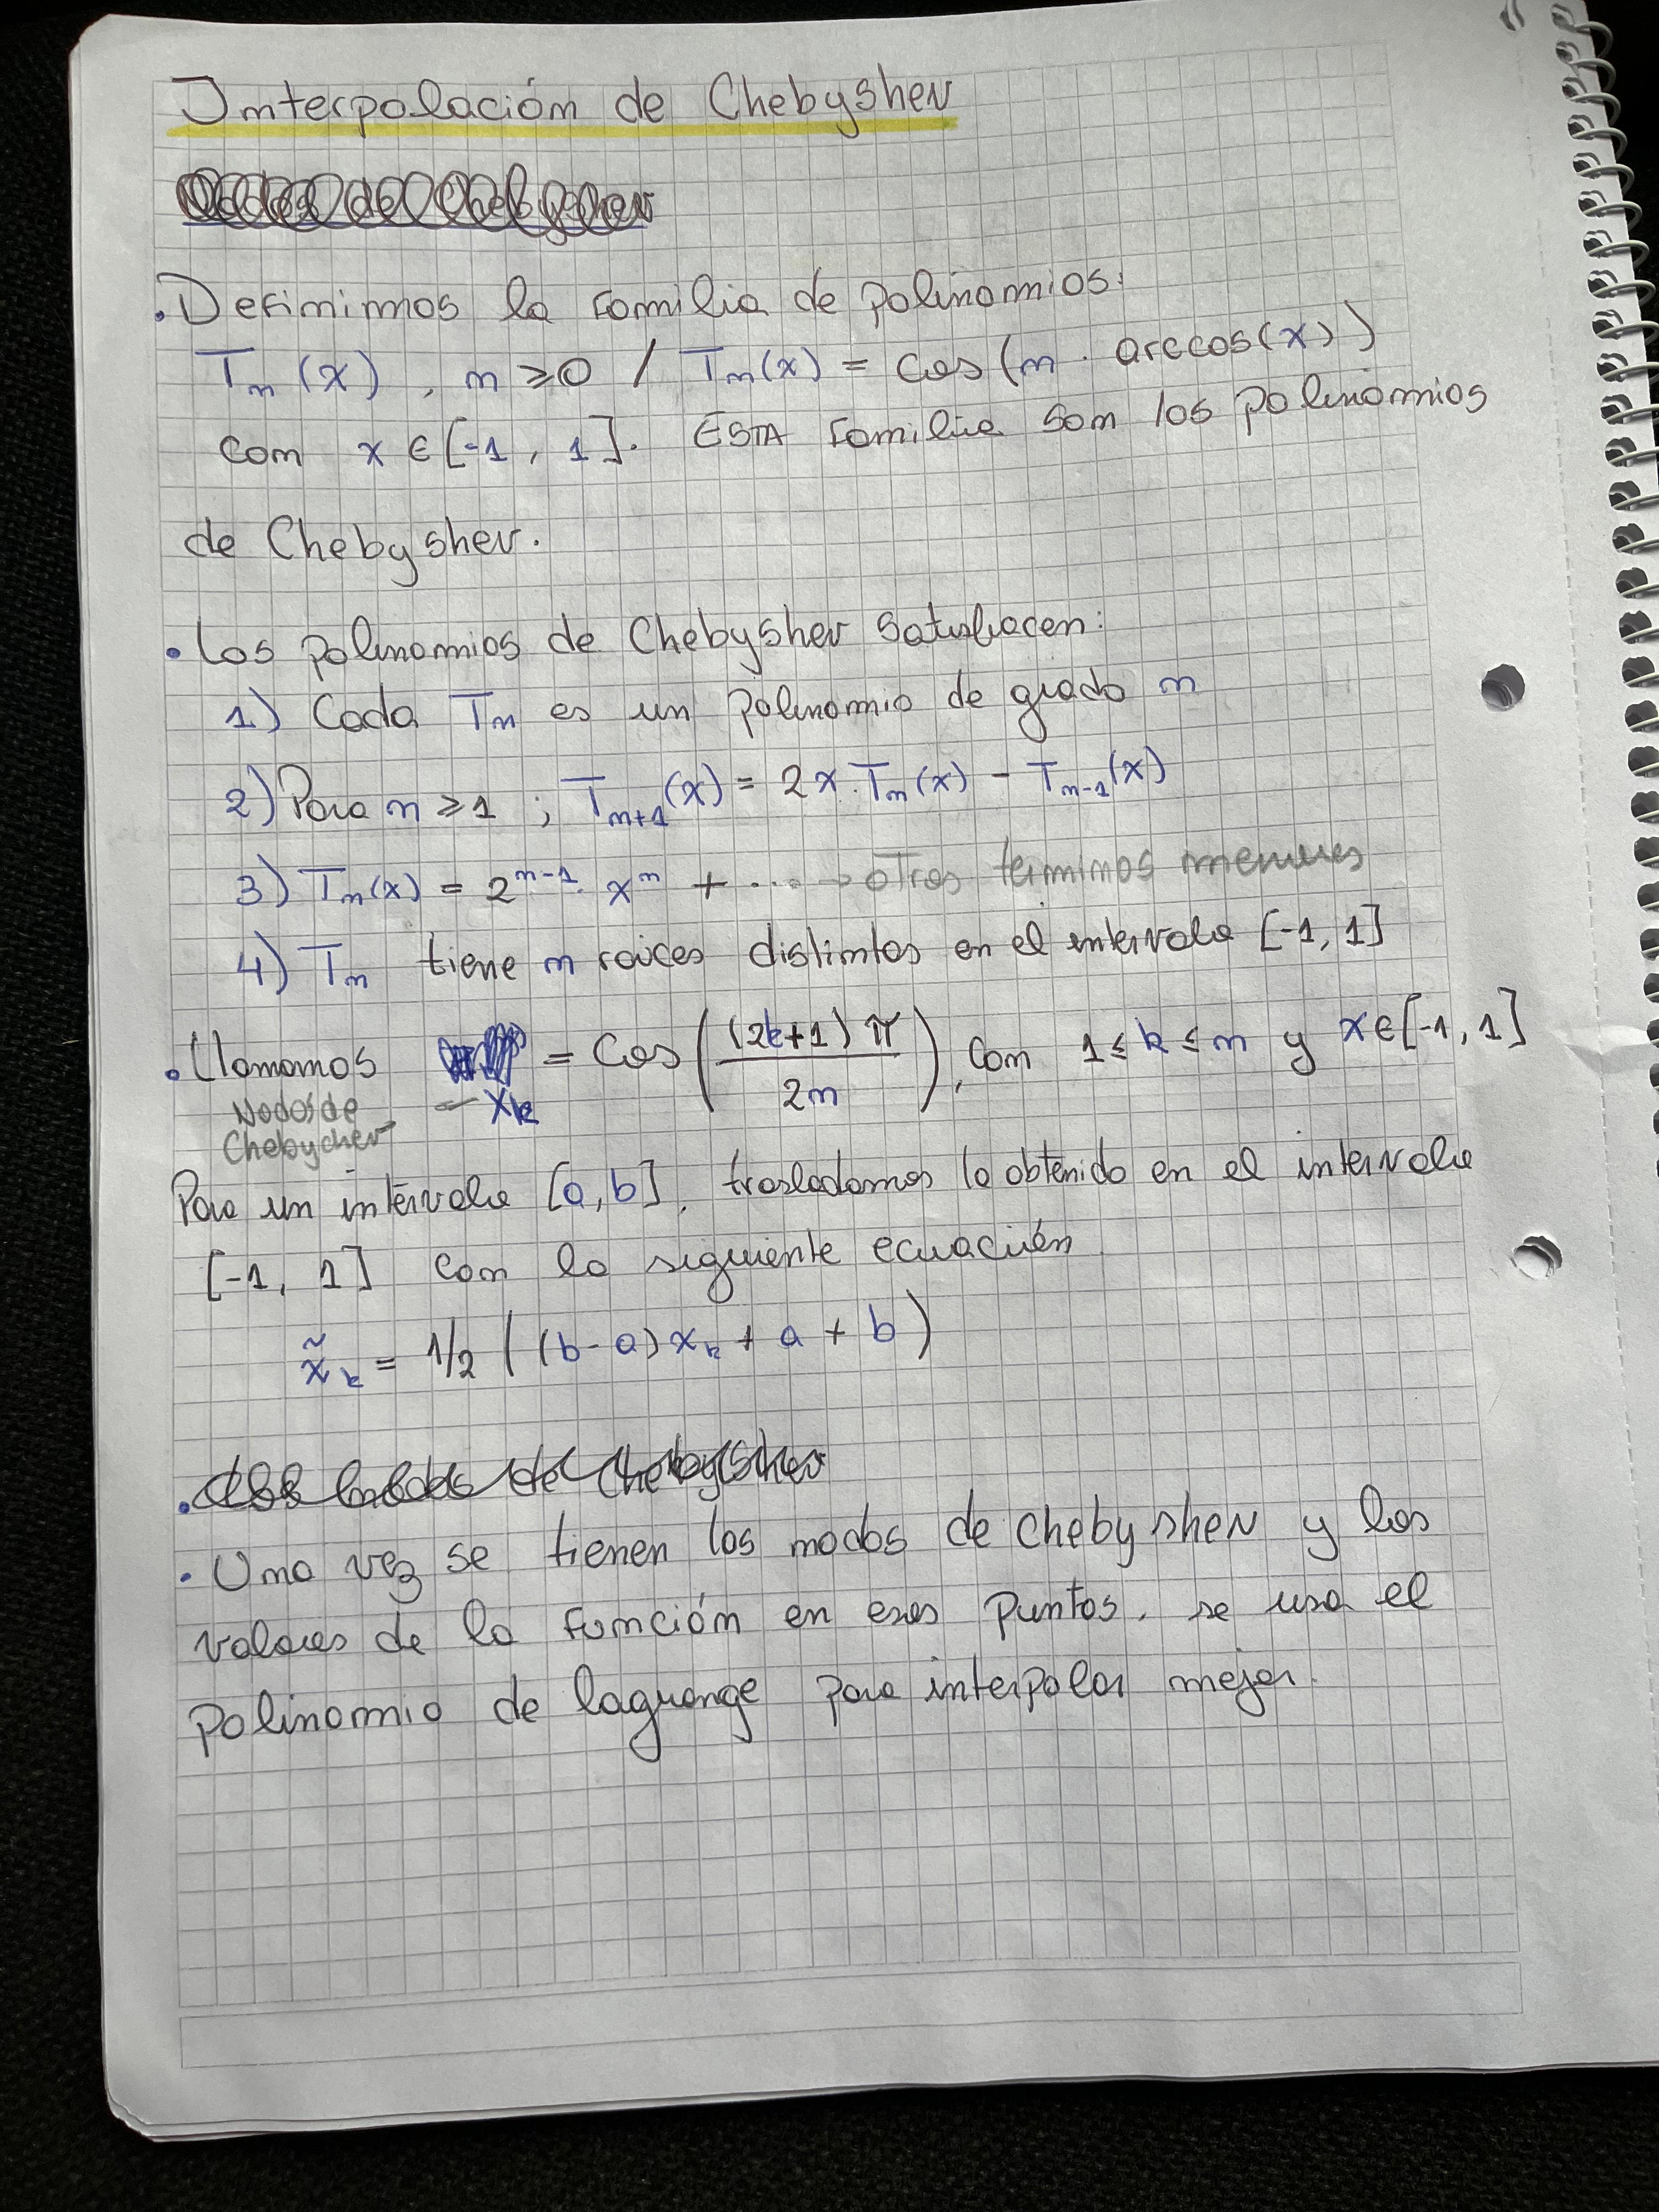 Interpolación de Chebyshev
Nodos de Chebyshev
• Definimos la familia de polinomios:
Tn (x) , n ≥ 0 / Tn(x) = cos(n · arccos(x))
con x ∈ [-1 , 1]. ESTA familia son los polinomios
de Chebyshev.
• Los polinomios de Chebyshev satisfacen:
1) Cada Tn es un polinomio de grado n
2) Para n ≥ 1 ; Tn+1(x) = 2x.Tn(x) - Tn-1(x)
3) Tn(x) = 2^(n-1) · x^n + ···· → otros terminos menores
4) Tn tiene n raices distintas en el intervalo [-1, 1]
• Llamamos = Cos((2k+1) π / 2n), con 1 ≤ k ≤ n y x∈[-1, 1]
Nodos de — xk
Chebychev
Para un intervalo [a, b], trasladamos lo obtenido en el intervalo
[-1, 1] con la siguiente ecuación
x̃k = 1/2 ( (b-a) xk + a + b )
• Los nodos de Chebyshev
• Una vez se tienen los nodos de Chebyshev y los
valores de la función en esos puntos, se usa el
polinomio de lagrange para interpolar mejor.